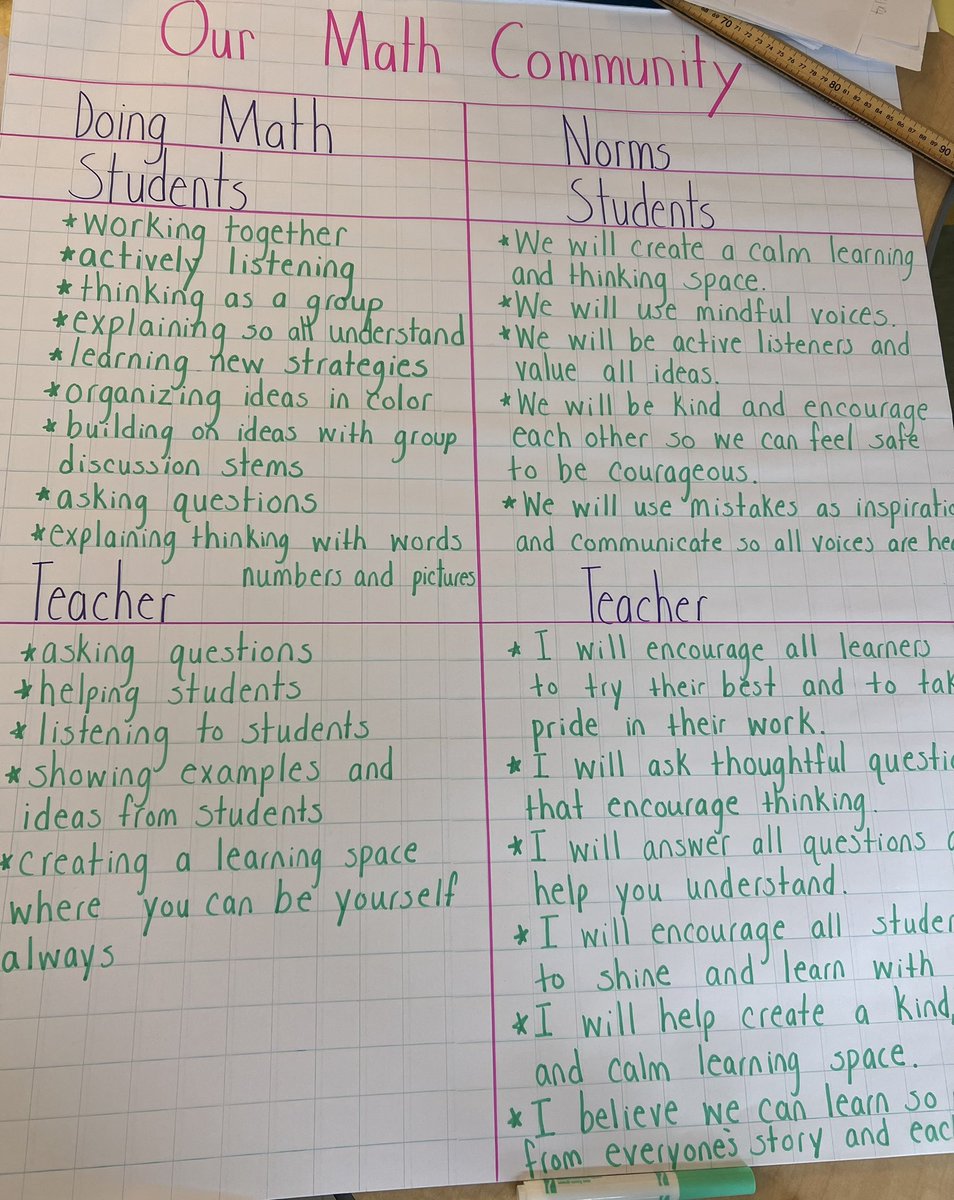 Our Math Community
Doing Math
Students
*working together
*actively listening
*thinking as a group
*explaining so all understand
*learning new strategies
*organizing ideas in color
*building on ideas with group
discussion stems
*asking questions
*explaining thinking with words
numbers and pictures
Teacher
*asking questions
*helping students
*listening to students
*showing examples and
ideas from students
*creating a learning space
where you can be yourself
always
Norms
Students
*We will create a calm learning
and thinking space.
*We will use mindful voices.
*We will be active listeners and
value all ideas.
*We will be kind and encourage
each other so we can feel safe
to be courageous.
*We will use mistakes as
and communicate so all voices are
Teacher
*I will encourage all learners
to try their best and to
pride in their work.
*I will ask thoughtful
that encourage thinking.
*I will answer all questions
help you understand.
*I will encourage all
to shine and learn with
*I will help create a kind,
and calm learning space.
*I believe we can learn so
from everyone's story and